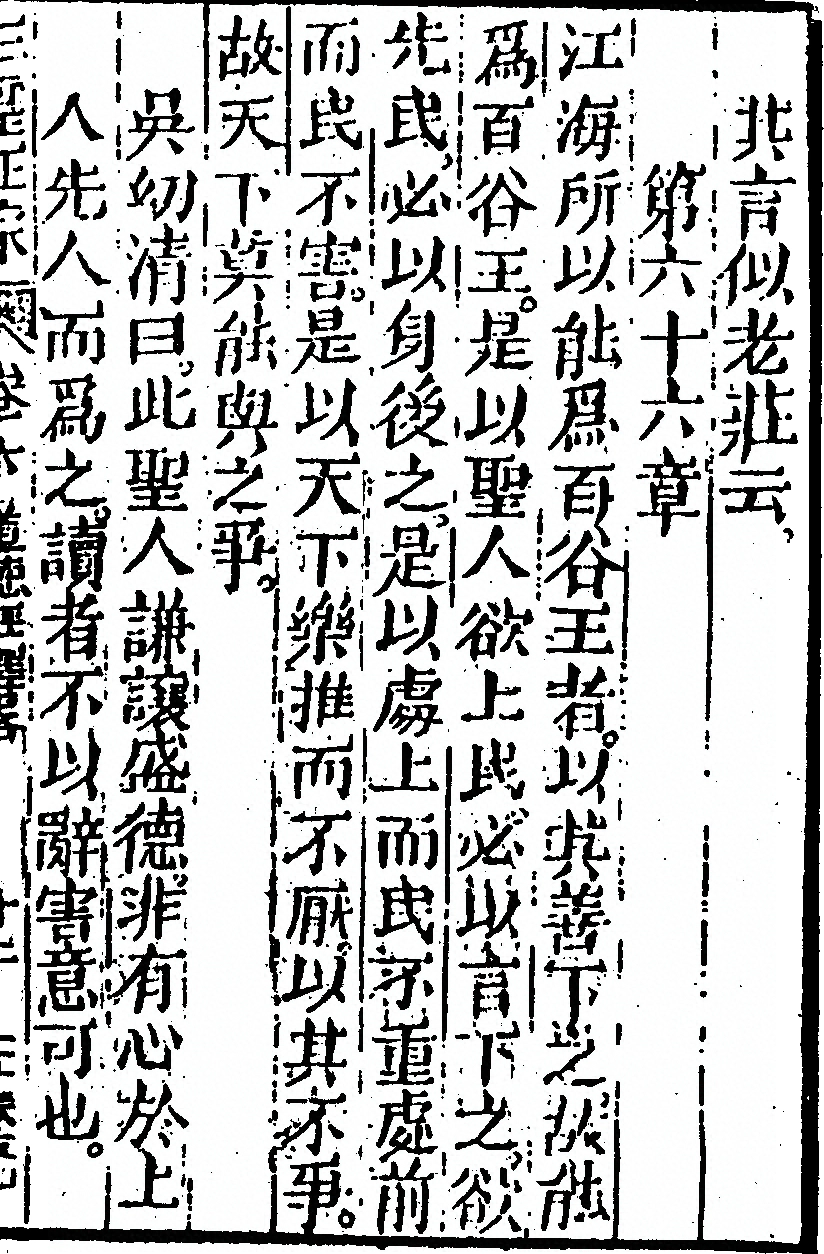 其言似老莊云、
第六十六章
江海所以能爲百谷王者。以其善下之故能
爲百谷王。是以聖人欲上民必以言下之、欲
先民、必以身後之、是以處上而民不重處前
而民不害。是以天下樂推而不厭、以其不爭。
故天下莫能與之爭。
吳幼清曰、此聖人謙讓盛德、非有心於上
人先人而爲之。讀者不以辭害意可也。
道德經釋畧